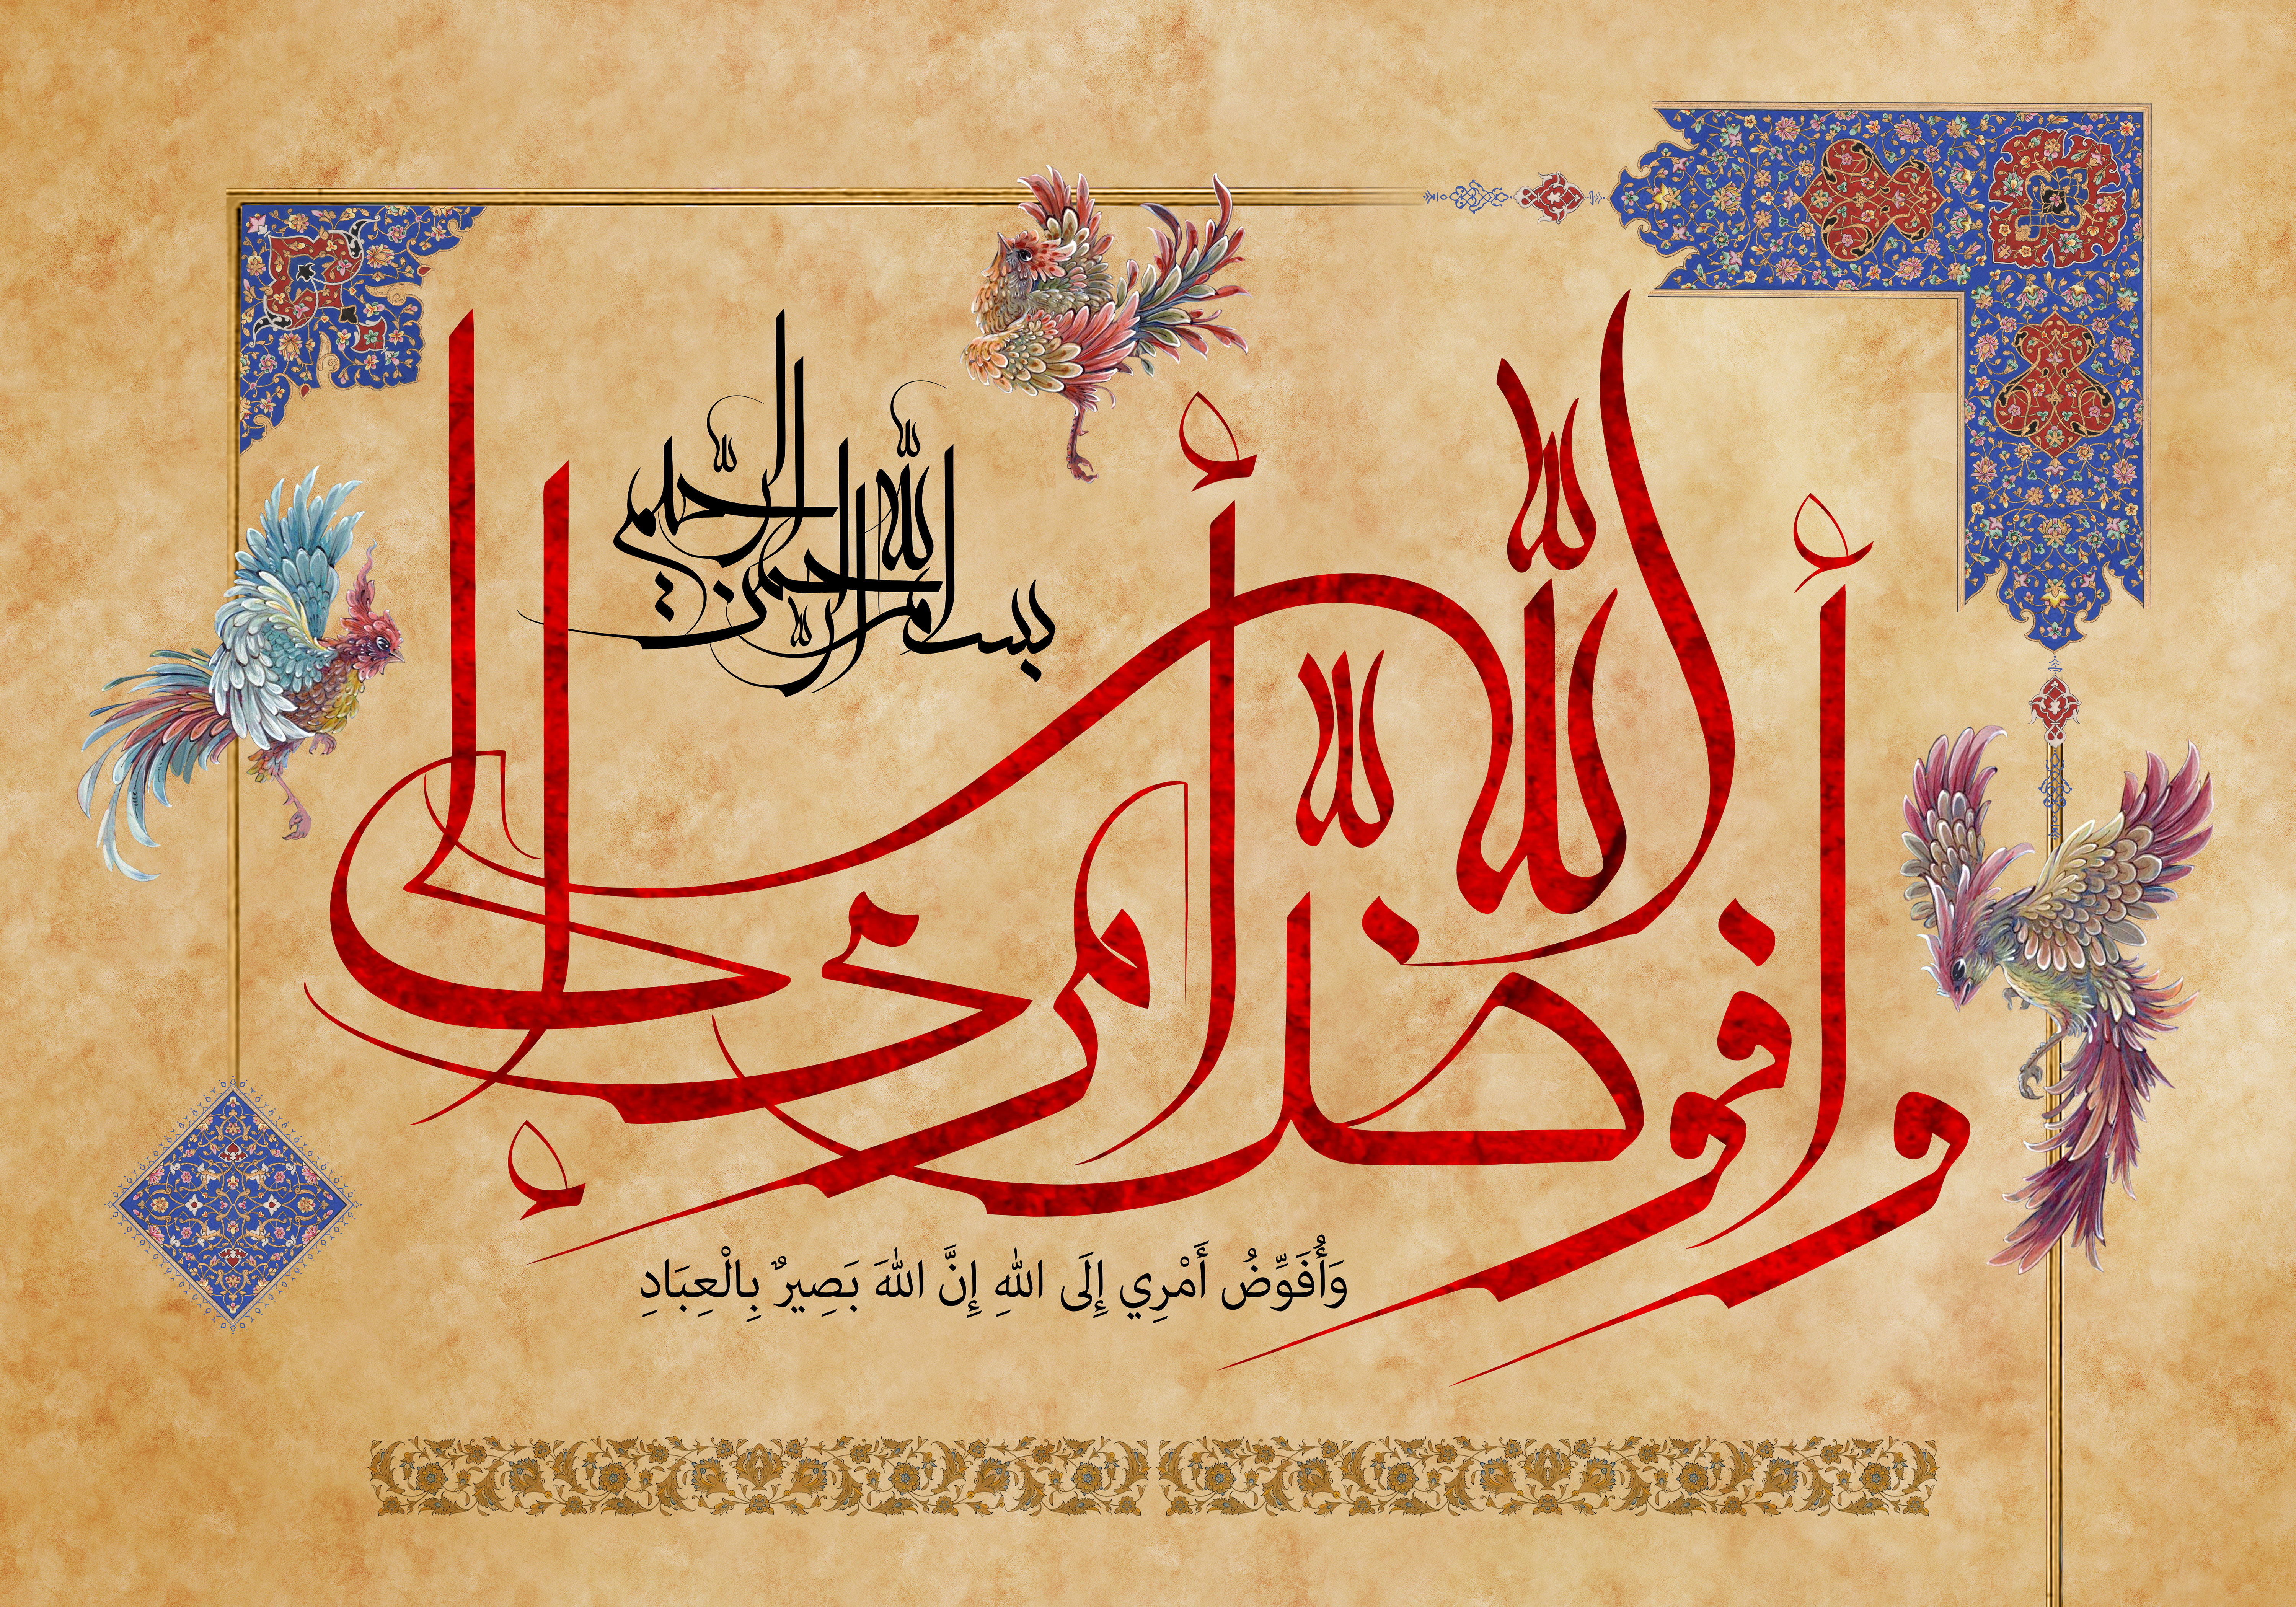 بسم الله الرحمن الرحيم
وأفوض أمري إلى الله
وَأُفَوِّضُ أَمْرِي إِلَى اللهِ إِنَّ اللهَ بَصِيرٌ بِالْعِبَادِ